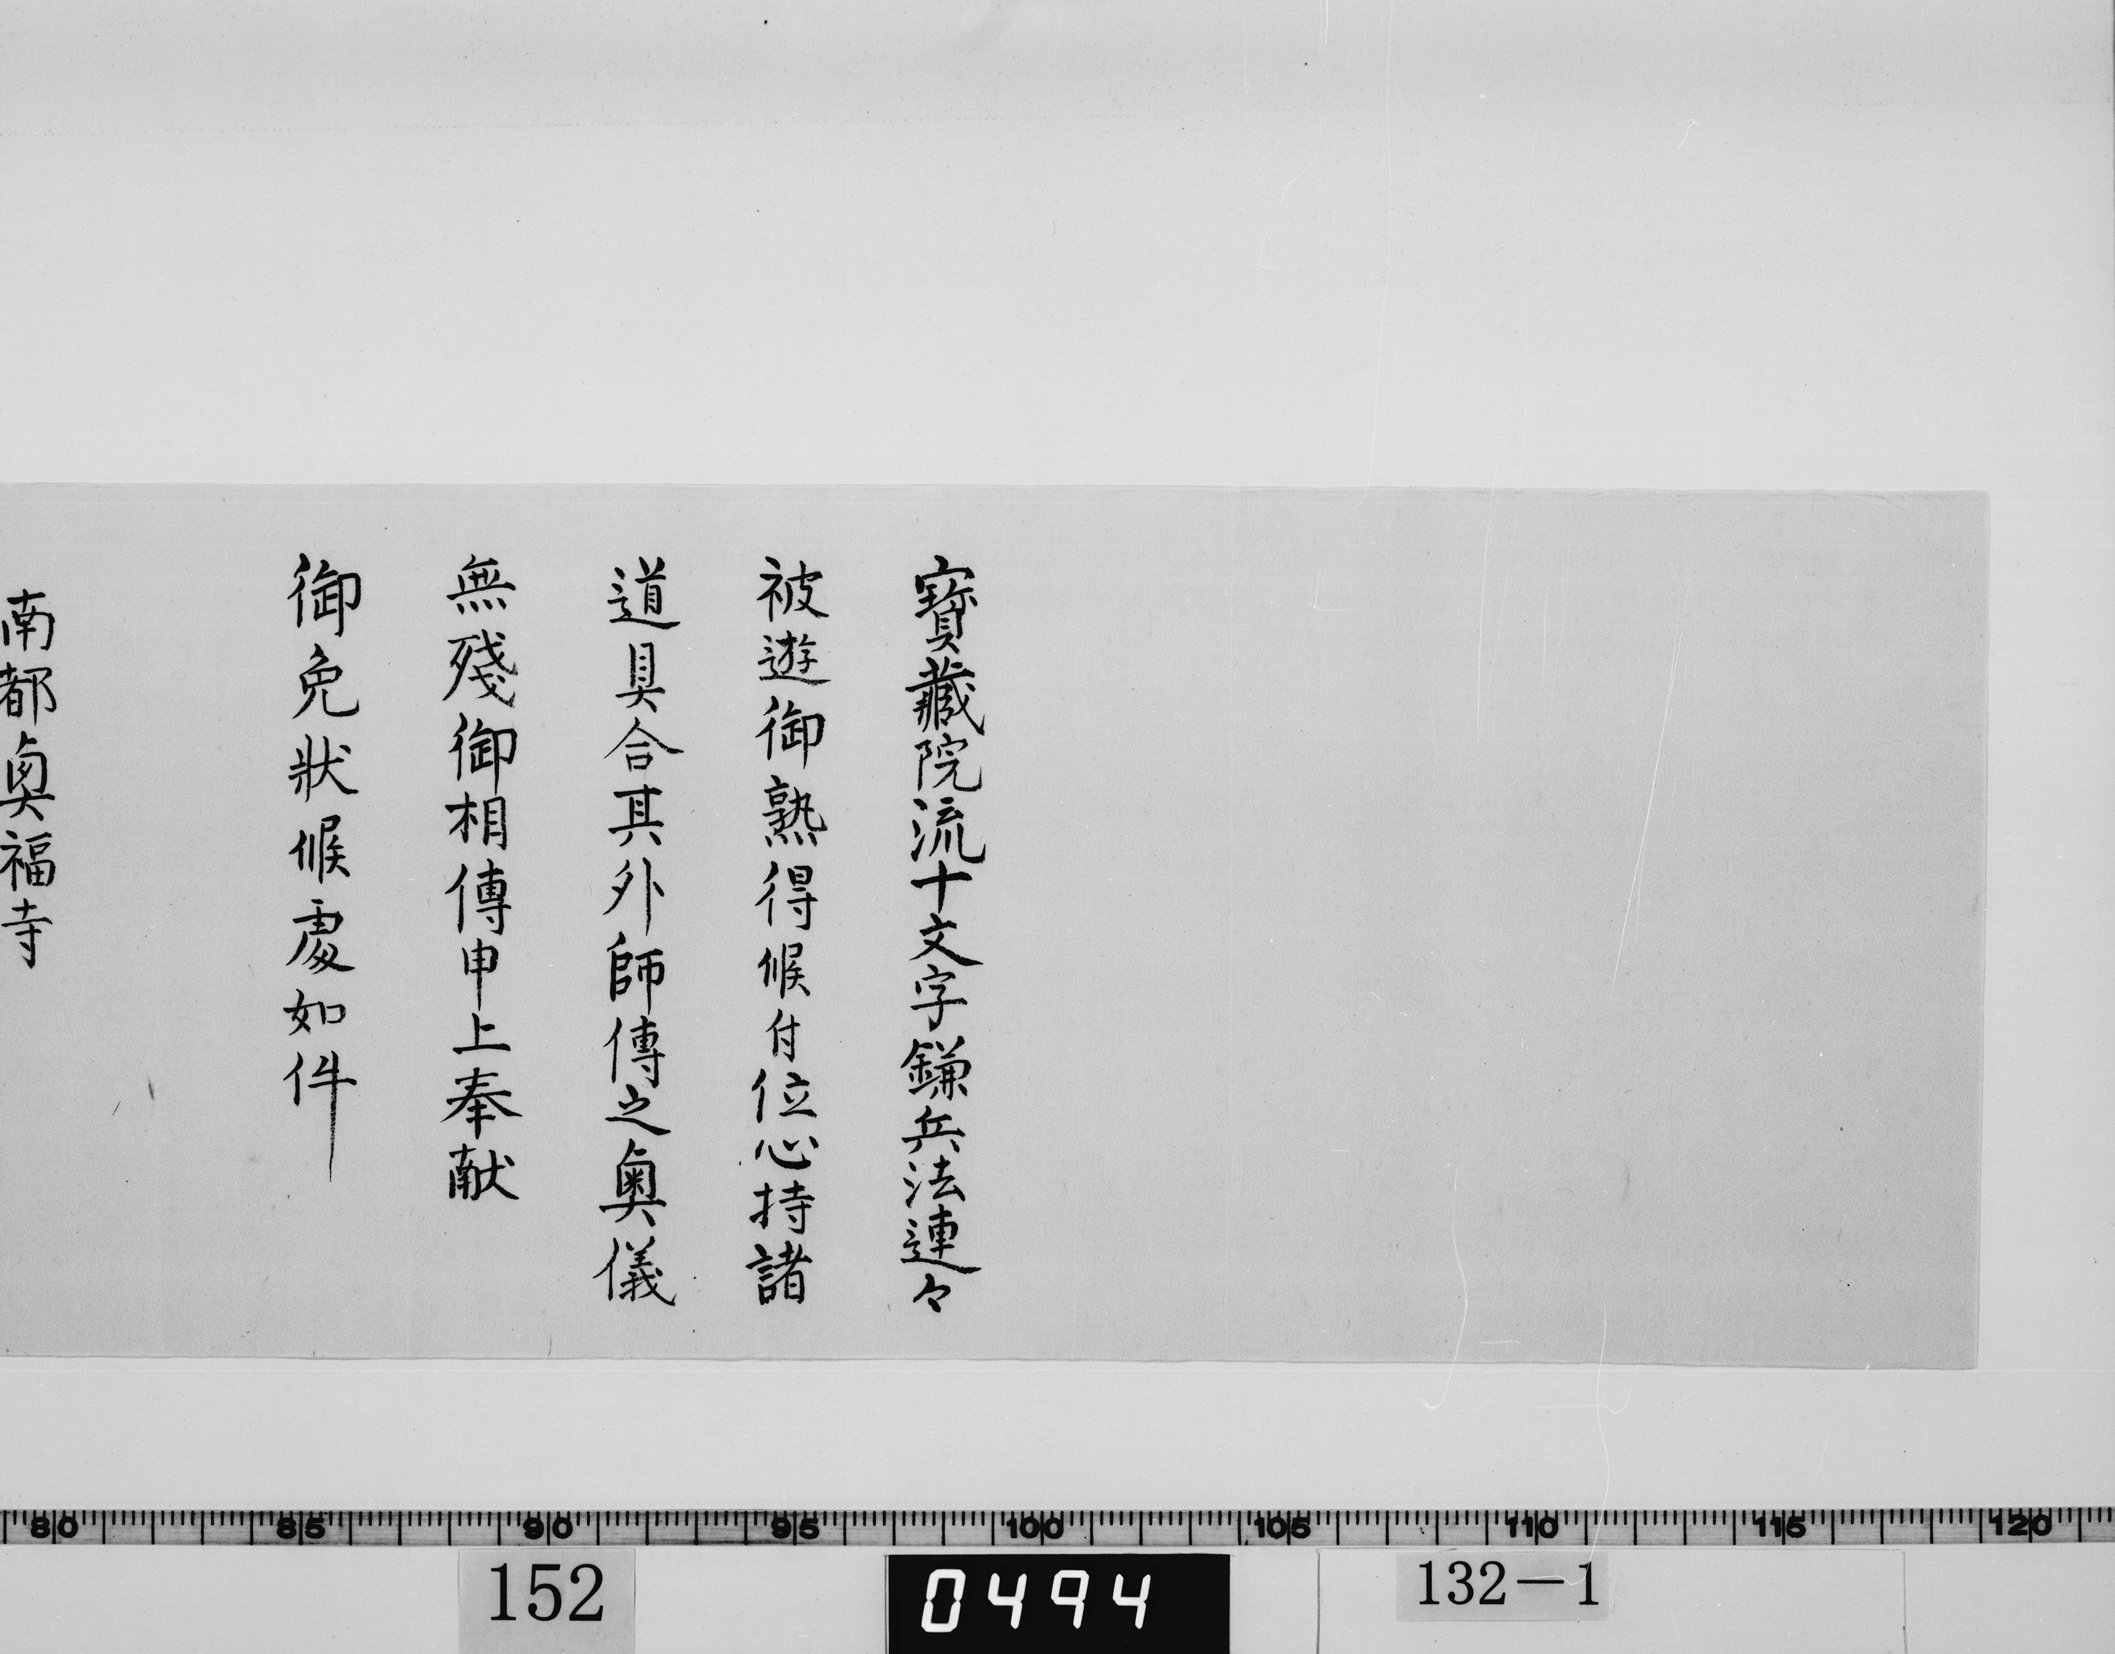 寶藏院流十文字鎌兵法連々
被遊御熟得候付位心持諸
道具合其外師傳之奥儀
無殘御相傳申上奉献
御免狀候處如件
南都興福寺
80 85 90 95 100 105 110 115 120
152
0494
132-1